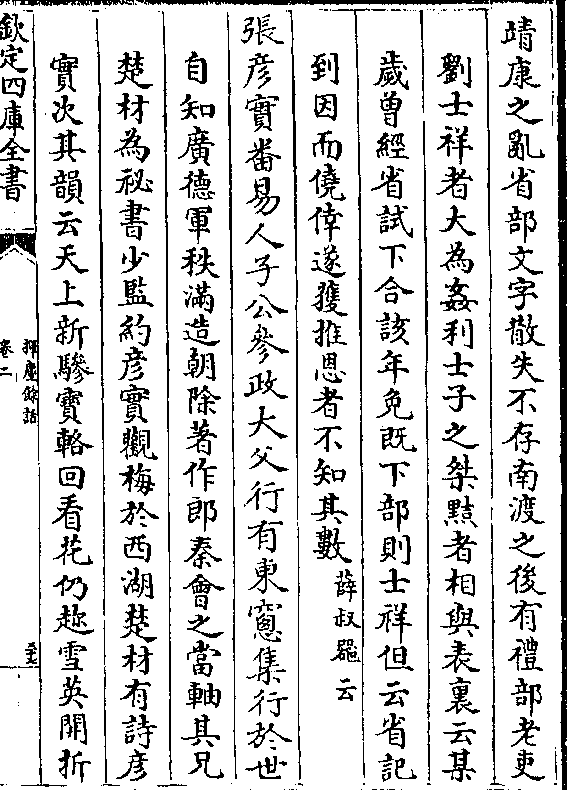 靖康之亂省部文字散失不存南渡之後有禮部老吏
劉士祥者大為姦利士子之桀黠者相與表裏云某
歲曾經省試下合該年免既下部則士祥但云省記
到因而僥倖遂獲推恩者不知其數薛叔器云
張彦實番易人子公參政大父行有東窻集行於世
自知廣德軍秩滿造朝除著作郎秦會之當軸其兄
楚材為祕書少監約彦實觀梅於西湖楚材有詩彦
實次其韻云天上新驂寶輅回看花仍趂雪英開折
欽定四庫全書
揮麈餘話
卷二